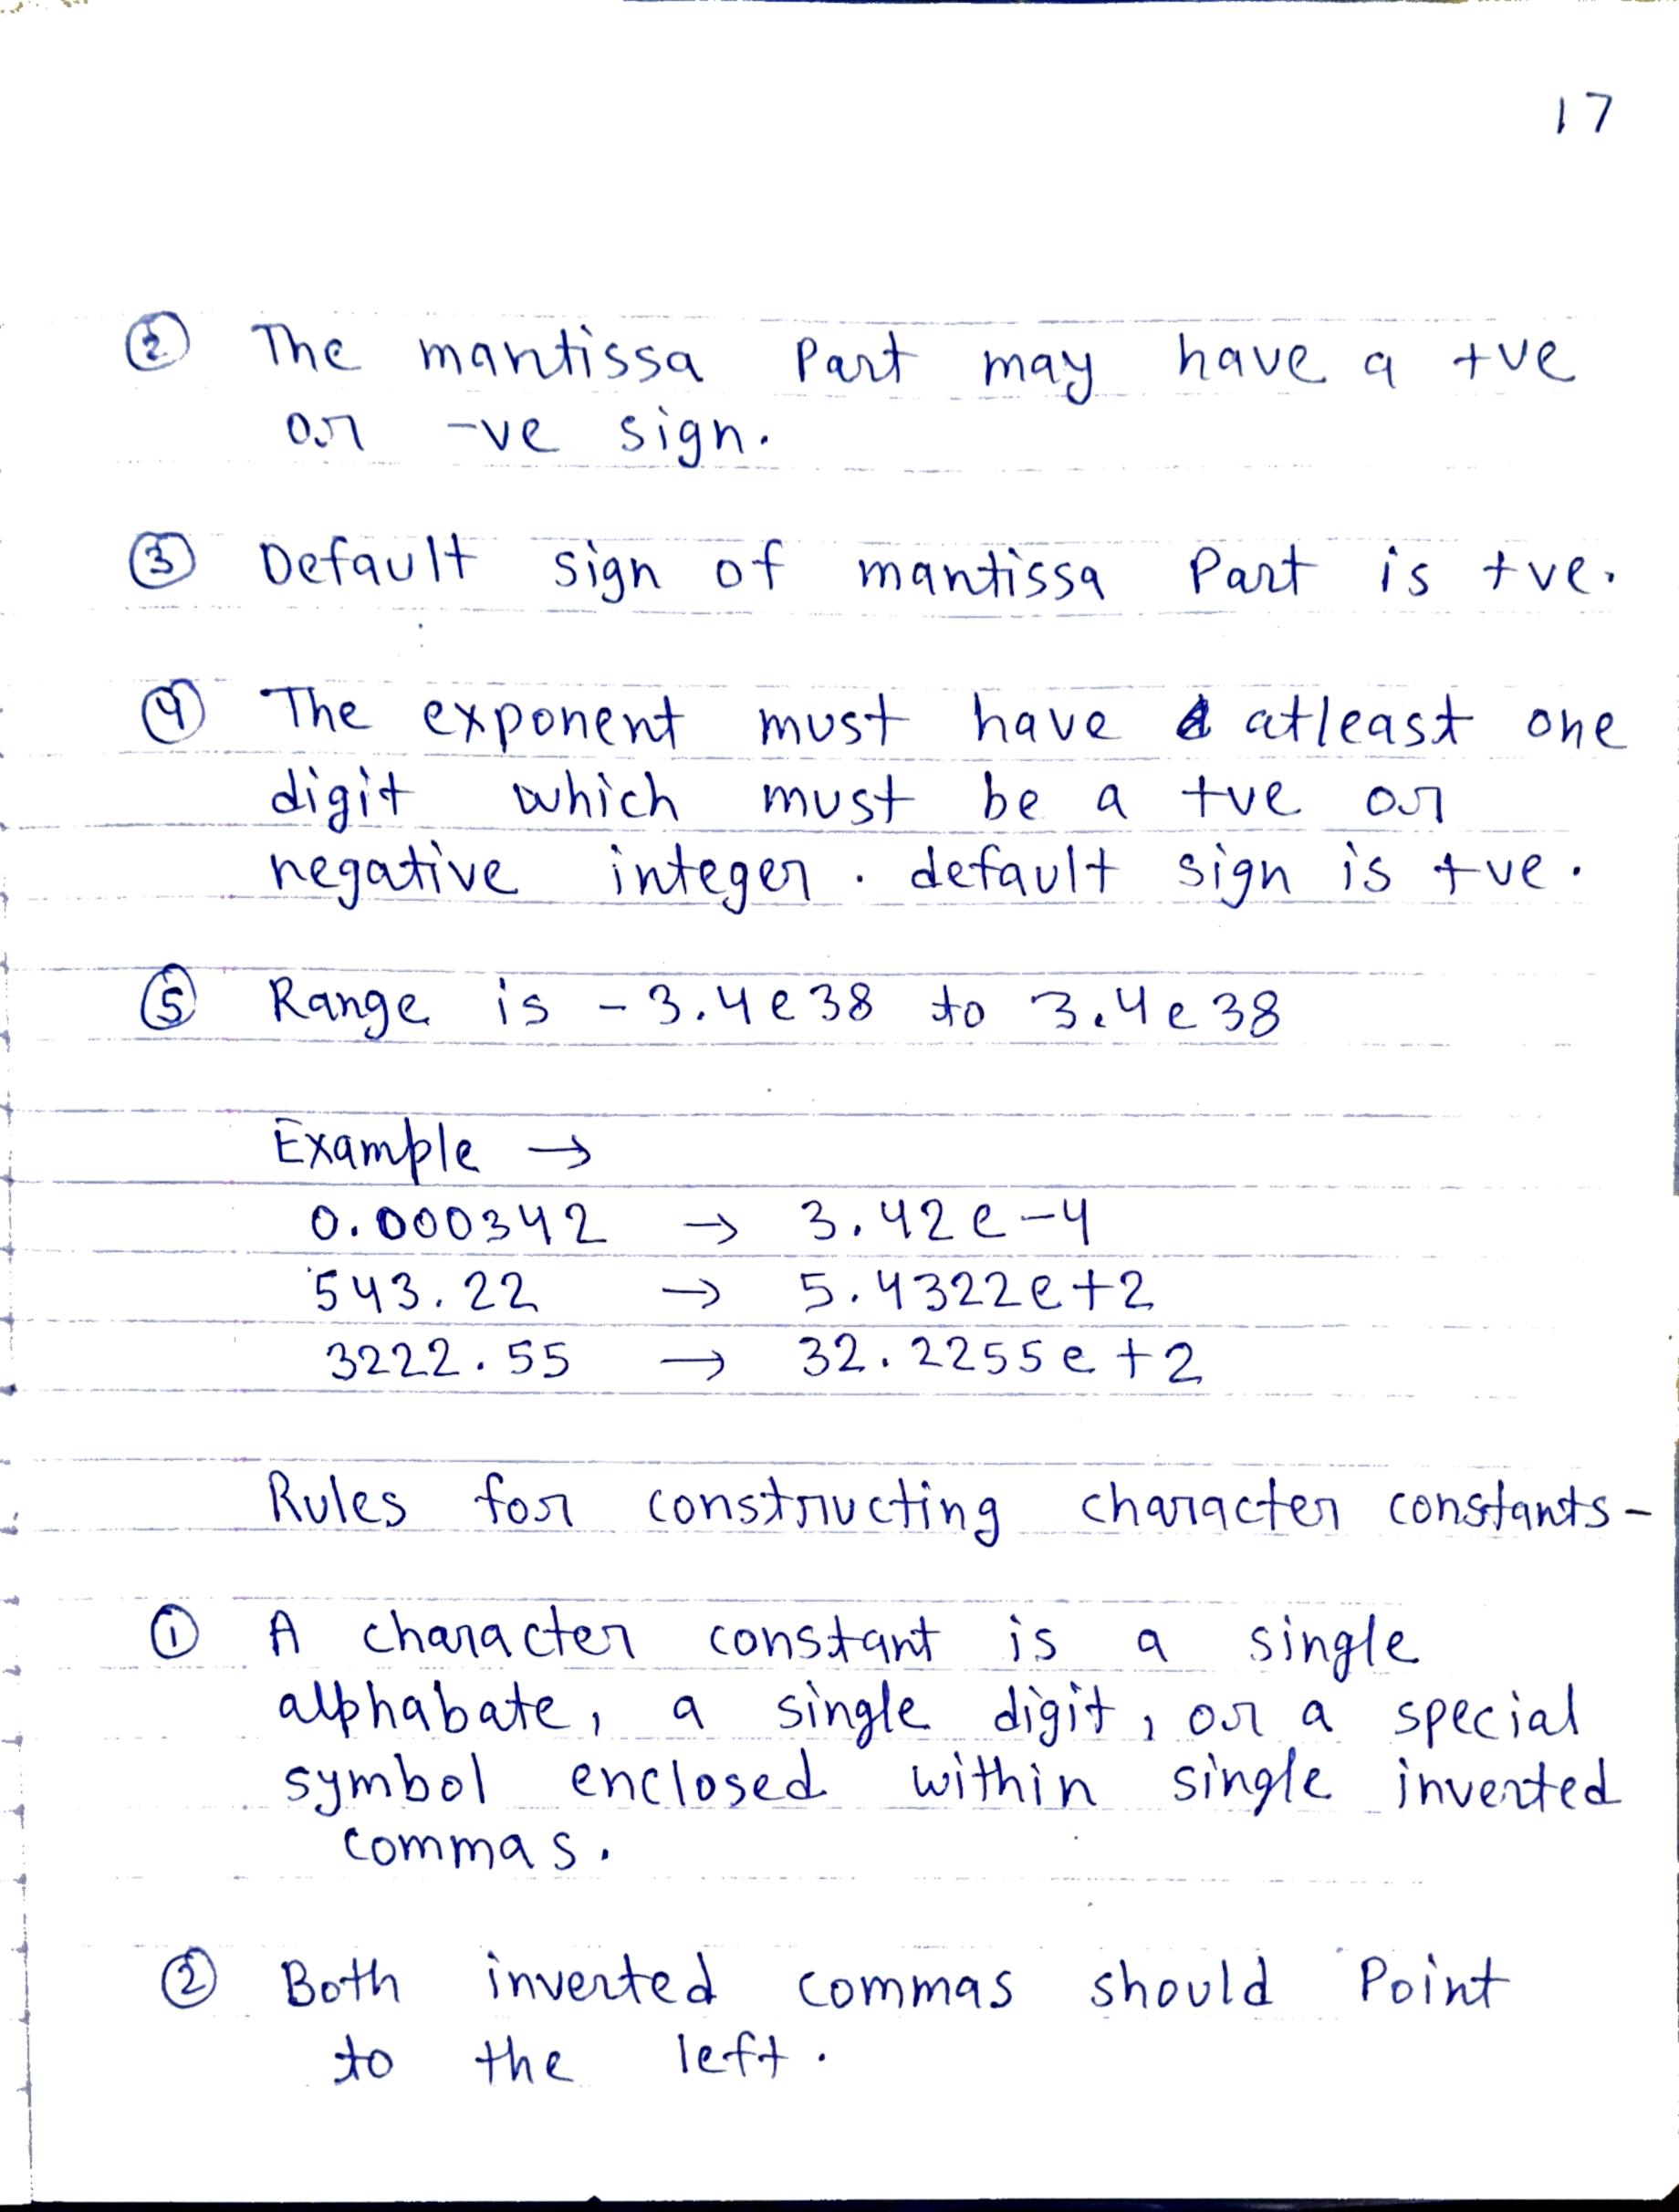 17
② The mantissa Part may have a +ve
or -ve sign.
③ Default sign of mantissa Part is +ve.
④ The exponent must have atleast one
digit which must be a +ve or
negative integer. default sign is +ve.
⑤ Range is -3.4e38 to 3.4e38
Example →
0.000342 → 3.42e-4
543.22 → 5.4322e+2
3222.55 → 32.2255e+2
Rules for constructing character constants-
① A character constant is a single
alphabate, a single digit, or a special
symbol enclosed within single inverted
commas.
② Both inverted commas should Point
to the left.